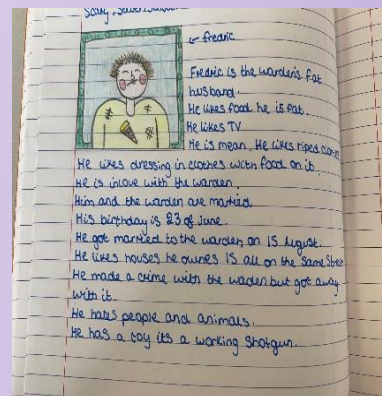 Scary,
← fredric
Fredric is the warden's fat
husband.
He likes food he is fat.
He likes TV
He is mean. He likes riped
He likes dressing in clothes with food on it.
He is inlove with the warden.
Him and the warden are married
His birthday is 23 of June.
He got married to the warden on 15 August.
He likes houses he ownes 15 all on the same Street
He made a crime with the waden but got away
with it.
He hates people and animals.
He has a toy its a working shotgun.